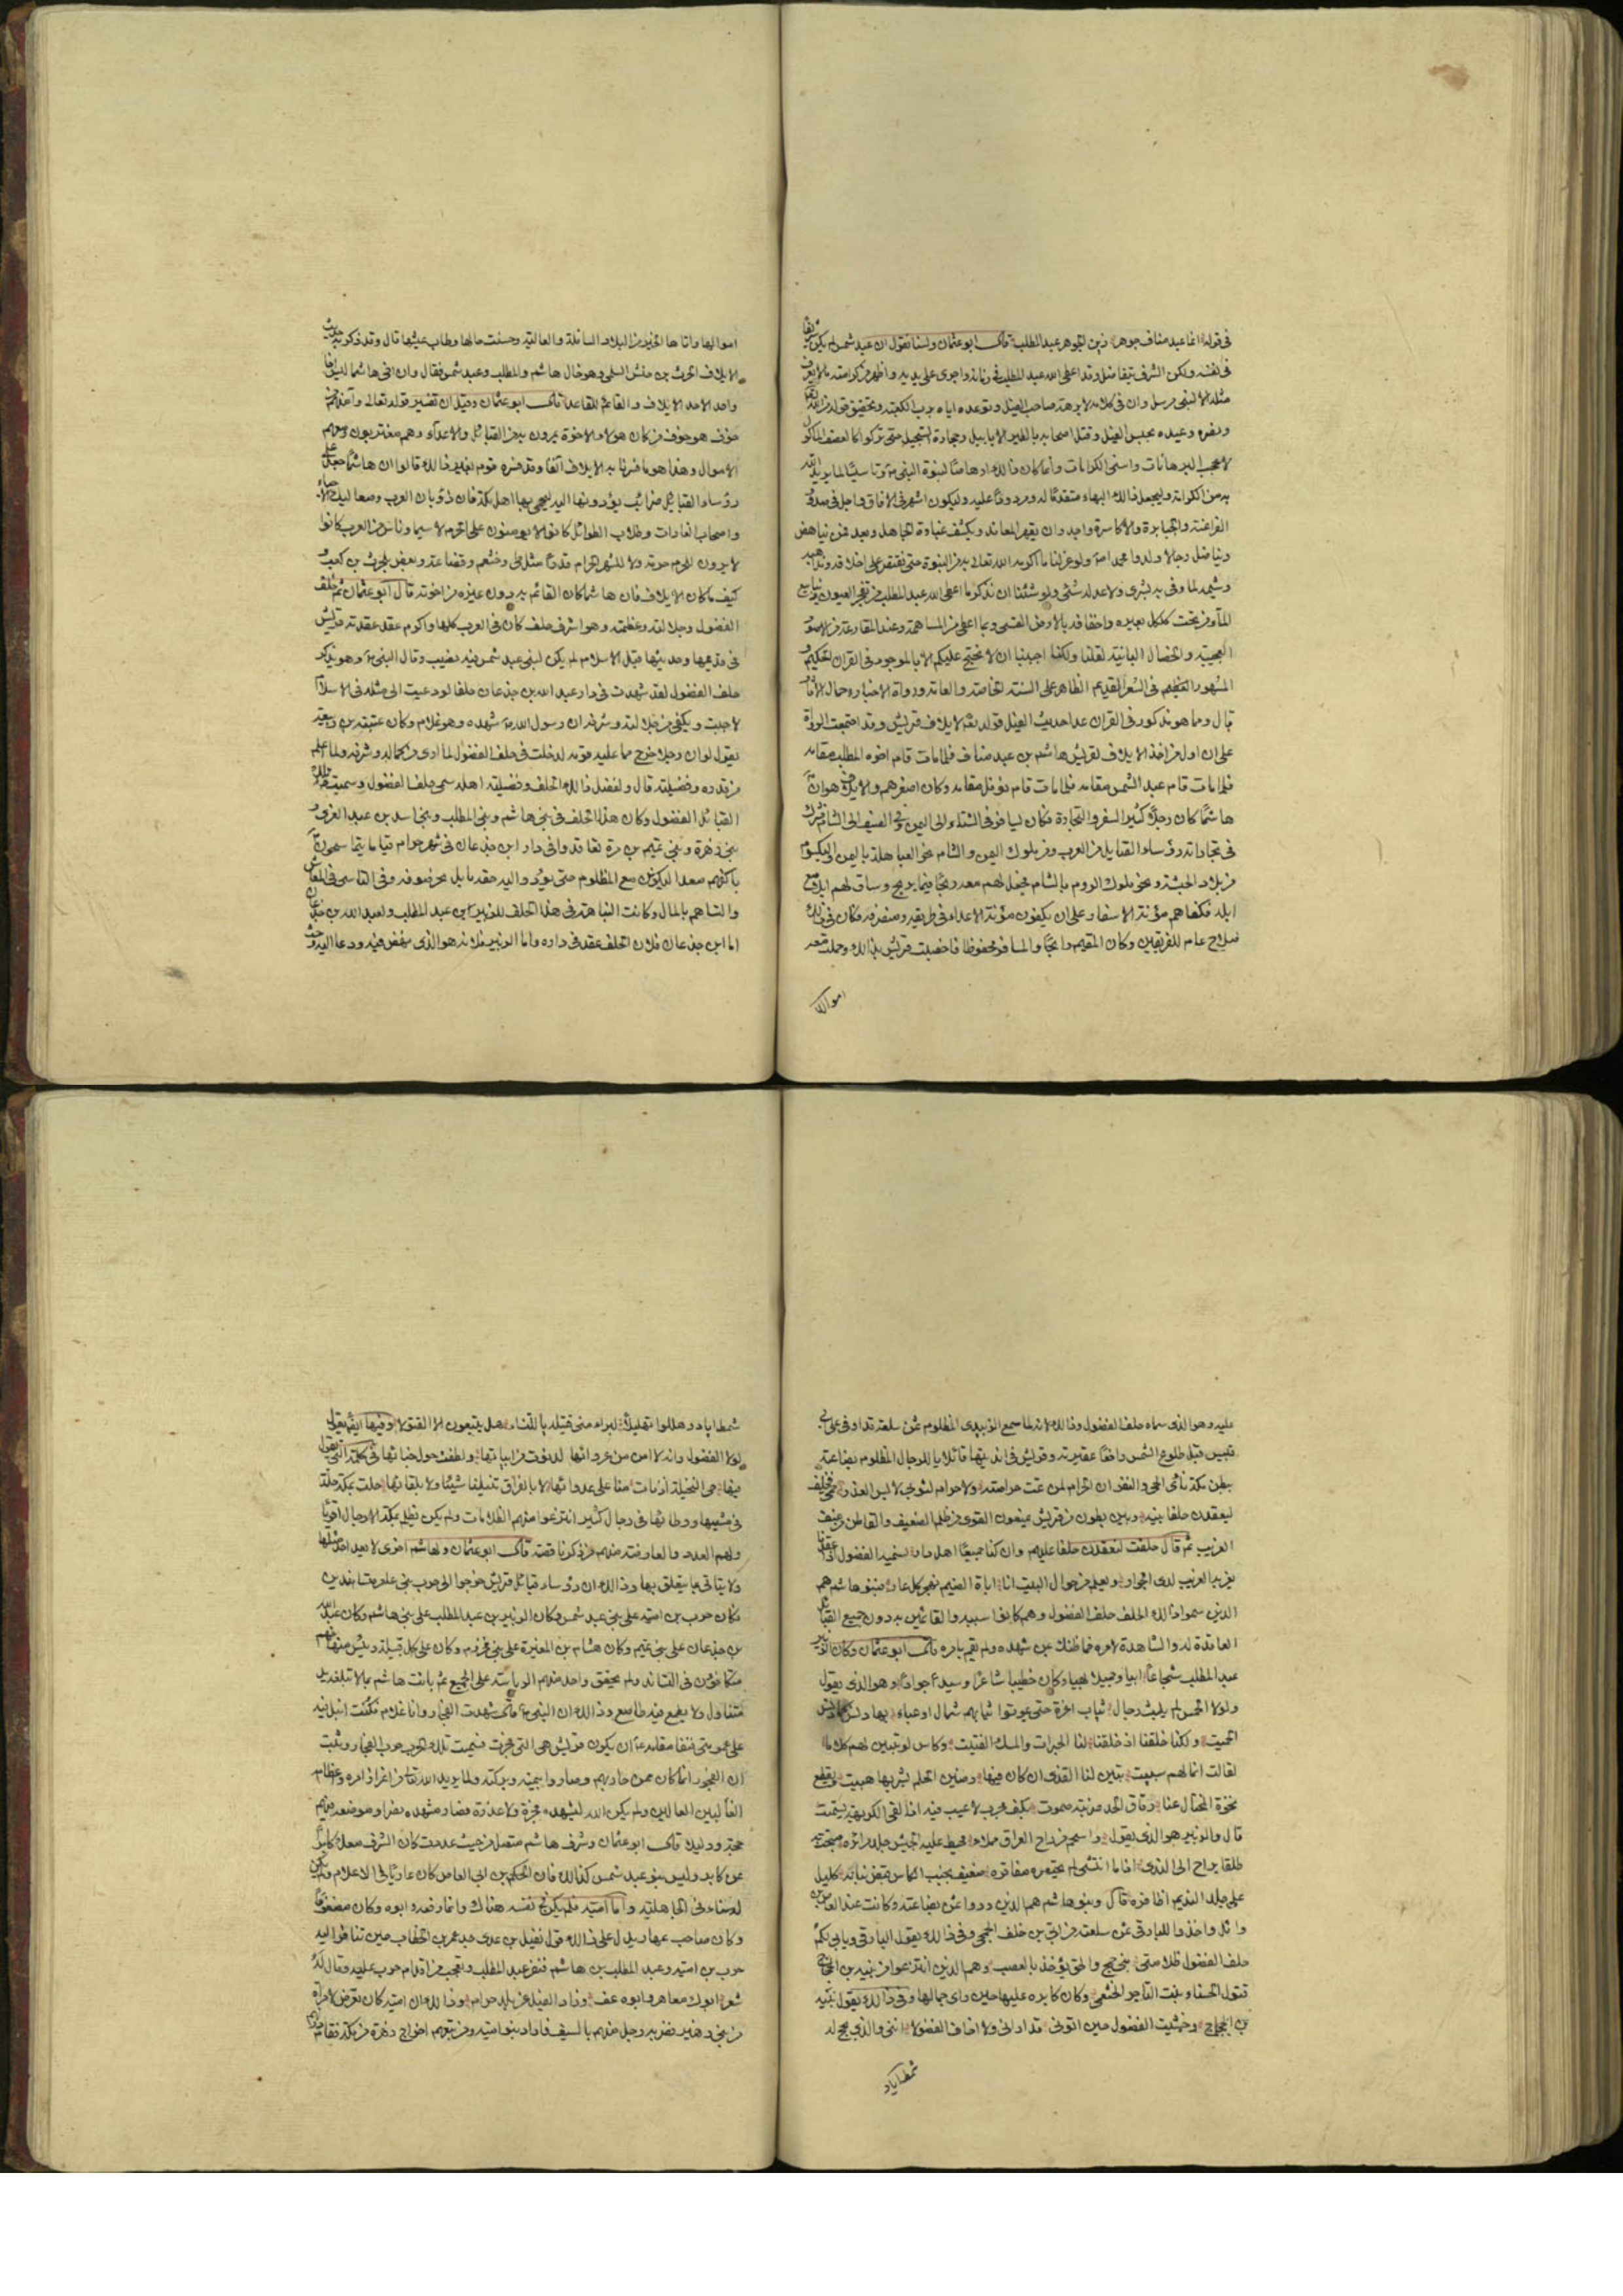 في قوله انما عبد مناف جوهر زين الجوهر عبد المطلب قال ابو عثمان ولسنا نقول ان عبد شمس لم يكن شريفا
في نفسه ولكن الشرف يتفاضل وقد اعطى الله عبد المطلب في زمانه واجرى على يديه واظهر من كرامته ما لا يعرف
مثله الا لنبي مرسل وان في كلامه لابرهة صاحب الفيل وتوعده اياه برب الكعبة وتحقيق قوله من الله تعالى
ونصره وعيده بحبس الفيل وقتل اصحابه بالطير الابابيل وحجارة السجيل حتى تركوا كالعصف المأكول
لاعجب البرهانات واسنى الكرامات وانما كان ذلك ارهاصا لنبوة النبي ص وتاسيسا لما يريد الله
به من الكرامة وليجعل ذلك البهاء متقدما له ومردودا عليه وليكون اشهر في الافاق واجل في صدور
الفراعنة والجبابرة والاكاسرة واجدر ان يقهر المعاند ويكشف غباوة الجاهل وبعد فمن يناهض
ويناضل رجالا ولدوا محمدا ص ولو عزلنا ما اكرمه الله تعالى به من النبوة حتى نقتصر على اخلاقه ومذاهبه
وشيمه لما وفى به بشر ولا عدله شئ ولو شئنا ان نذكر ما اعطى الله عبد المطلب من تفجر العيون وينابيع
الماء من تحت كلكل بعيره واخفافه بالارض القسي وبما اعطي من المساهمة وعند المقارعة من الامور
العجيبة والخصال البائنة لقلنا ولكنا احببنا ان لا نحتج عليكم الا بالموجود في القران الحكيم و
المشهور في الشعر القديم الظاهر على السنة الخاصة والعامة ورواة الاخبار وحمال الاثار
قال ومما هو مذكور في القران عدا حديث الفيل قوله تعالى لايلاف قريش وقد اجتمعت الرواة
على ان اول من اخذ الايلاف لقريش هاشم بن عبد مناف فلما مات قام اخوه المطلب مقامه
فلما مات قام عبد الشمس مقامه فلما مات قام نوفل مقامه وكان اصغرهم والايلاف هو ان
هاشما كان رجلا كثير السفر والتجارة فكان يسافر في الشتاء الى اليمن وفي الصيف الى الشام وشرك
في تجاراته رؤساء القبايل من العرب ومن ملوك اليمن والشام نحو العباهلة باليمن واليكسوم
من بلاد الحبشة ونحو ملوك الروم بالشام فجعل لهم معه ربحا فيما يربح وساق لهم ابلا مع
ابله فكفاهم مؤنة الاسفار على ان يكفون مؤنة الاعداء في طريقه ومنصرفه فكان في ذلك
صلاح عام للفريقين وكان المقيم رابحا والمسافر محفوظا فاخصبت قريش بذلك وحملت معه
اموالها
اموالها واتاها الخير من البلاد السافلة والعالية وحسنت حالها وطاب عيشها قال وقد ذكر حديث
الايلاف الحرث بن حنش السلمي وهو خال هاشم والمطلب وعبد شمس فقال وان اخي هاشما ليس اخا
واحد الاخذ الايلاف والقائم للقاعد قال ابو عثمان وقيل ان تفسير قوله تعالى وآمنهم من
خوف هو خوف من كان هؤلاء الاخوة يمرون به من القبائل والاعداء وهم مغتربون ومعهم
الاموال وهذا هو ما فسرنا به الايلاف آنفا وقد فسره قوم بغير ذلك قالوا ان هاشما جعل على
رؤساء القبائل ضرائب يؤدونها اليه ليحمي بها اهل مكة فان ذؤبان العرب وصعاليك الاحياء
واصحاب الغارات وطلاب الطوائل كانوا لا يؤمنون على الحرم لا سيما وناس من العرب كانوا
لا يرون للحرم حرمة ولا للشهر الحرام قدرا مثل طي وخثعم وقضاعة وبعض بلحرث بن كعب و
كيف ما كان الايلاف فان هاشما كان القائم به دون غيره من اخوته قال ابو عثمان ثم حلف
الفضول وجلالته وعظمته وهو اشرف حلف كان في العرب كلها واكرم عقد عقدته قريش
في قديمها وحديثها قبل الاسلام لم يكن لبني عبد شمس فيه نصيب وقال النبي ص وهو يذكر
حلف الفضول لقد شهدت في دار عبد الله بن جذعان حلفا لو دعيت الى مثله في الاسلام
لاجبت ويكفي من جلالته وشرفه ان رسول الله ص شهده وهو غلام وكان عتبة بن ربيعة
يقول لو ان رجلا خرج مما عليه قومه لدخلت في حلف الفضول لما ارى من كماله وشرفه ولما اعلم
من قدره وفضيلته قال ولفضل ذلك الحلف وفضيلة اهله سمي حلف الفضول وسميت تلك
القبائل الفضول وكان هذا الحلف في بني هاشم وبني المطلب وبني اسد بن عبد العزى و
بني زهرة وبني تميم بن مرة تعاقدوا في دار ابن جذعان في شهر حرام قياما يتماسحون
باكفهم صعدا ليكونن مع المظلوم حتى يؤدوا اليه حقه ما بل بحر صوفة وفي التاسي في المعاش
والتساهم بالمال وكانت النباهة في هذا الحلف للزبير بن عبد المطلب ولعبد الله بن جذعان
اما ابن جذعان فلان الحلف عقد في داره واما الزبير فلانه هو الذي نهض فيه ودعا اليه وحث
عليه وهو الذي سماه حلف الفضول وذلك لانه لما سمع الزبيدي المظلوم ثمن سلعته قد اوفى على ابي
قبيس قبل طلوع الشمس رافعا عقيرته وقريش في انديتها قائلا يا للرجال لمظلوم بضاعته
ببطن مكة نائي الحي والنفر ان الحرام لمن تمت حرامته ولا حرام لثوبي لابس الغدر حمي فحلف
ليعقدن حلفا بينه وبين بطون من قريش يمنعون القوي من ظلم الضعيف والقاطن من عنف
الغريب ثم قال حلفت لنعقدن حلفا عليهم وان كنا جميعا اهل دار نسميه الفضول اذا عقدنا
يعز به الغريب لدى الجوار ويعلم من حوالي البيت انا اباة الضيم نهجر كل عار فبنو هاشم هم
الذين سموا ذلك الحلف حلف الفضول وهم كانوا سببه والقائمين به دون جميع القبائل
العاقدة له والشاهدة لامره فما ظنك بمن شهده ولم يقم بامره قال ابو عثمان وكان الزبير بن
عبد المطلب شجاعا ابيا وجميلا بهيا وكان خطيبا شاعرا وسيدا جوادا وهو الذي يقول
ولولا الحمس لم يلبث رجال ثياب اعزة حتى يموتوا ثيابهم شمال او عباء بها دنس كما دنس
الحميت ولكنا خلقنا اذ خلقنا لنا الحبرات والمسك الفتيت وكاس لو تبين لهم كلاما
لقالت انما لهم سبيت تبين لنا القذى ان كان فيها رضين الحلم يشربها هبيت ويقطع
نخوة المختال عنا رقاق الحد ضربته صموت بكف مجرب لا عيب فيه اذا لقي الكريهة يستميت
قال والزبير هو الذي يقول واسحم من راح العراق مملاء محيط عليه الجيش جلد مرائره صبحت به
طلقا يراح الى الندى اذا ما انتشى لم يحتضره مفاقره ضعيف بجنب الكاس قبض بنانه كليل
على جلد النديم اظافره قال وبنو هاشم هم الذين ردوا على بضاعته وكانت عند العاص بن
وائل واخذوا للبارقي ثمن سلعته من ابي بن خلف الجمحي وفي ذلك يقول البارقي ويابى لكم
حلف الفضول ظلامتي بني جمح والحق يؤخذ بالغصب وهم الذين انتزعوا من نبيه بن الحجاج
قتول الحسناء بنت التاجر الخثعمي وكان كابره عليها حين راى جمالها وفي ذلك يقول نبيه
بن الحجاج وخشيت الفضول حين اتوني قد اراني ولا اخاف الفضولا اني والذي يحج له
شمط اياد
شمط اياد وهللوا تهليلا لبراء مني قتيلة يا للناس هل يتبعون الا القتولا وفيها ايضا يقول
لولا الفضول وانه لا امن من عروائها لدنوت من ابياتها ولطفت حول خبائها في كلمته التي يقول
فيها حي النخيلة اذ نات منا على عدوائها لا بالفراق تنيلنا شيئا ولا بلقائها حلت بمكة حلة
في مشيها ووطائها في رجال كثير انتزعوا منهم الظلامات ولم يكن يظلم بمكة الا رجال اقوياء
ولهم العدد والعارضة منهم من ذكرنا قصته قال ابو عثمان ولهاشم اخرى لا يعد احد مثلها
ولا ياتي بما يتعلق بها وذلك ان رؤساء قبائل قريش خرجوا الى حرب بني عامر متساندين
فكان حرب بن امية على بني عبد شمس وكان الزبير بن عبد المطلب على بني هاشم وكان عبد الله
بن جذعان على بني تميم وكان هشام بن المغيرة على بني مخزوم وكان على كل قبيلة رئيس منها فهم
متكافئون في التساند ولم يحقق واحد منهم الرياسة على الجميع ثم بانت هاشم بما لا تبلغه يد
متناول ولا يطمع فيه طامع وذلك ان النبي ص قال شهدت الفجار وانا غلام فكنت انبل فيه
على عمومتي فنفى مقامه ص ان يكون قريش هي التي فجرت فسميت تلك الحرب حرب الفجار وثبت
ان الفجور انما كان ممن حاربهم وصاروا بيمنه وبركته ولما يريد الله تعالى من اعزاز امره واعظام
الغالبين العالين ولم يكن الله ليشهده فجرة ولا غدرة فصار مشهده نصرا وموضعه منهم
حجة ودليلا قال ابو عثمان وشرف هاشم متصل من حيث عددت كان الشرف معك كابرا
عن كابر وليس بنو عبد شمس كذلك فان الحكم بن ابي العاص كان عاريا في الاعلام ولم يكن
له سناء في الجاهلية واما امية فلم يكن في نفسه هناك وانما رفعه ابوه وكان مضعوفا
وكان صاحب عهار يدل على ذلك قول نفيل بن عدي جد عمر بن الخطاب حين تنافر اليه
حرب بن امية وعبد المطلب بن هاشم فنفر عبد المطلب وتعجب من اقدام حرب عليه وقال له
شعر ابوك معاهر وابوه عف وذاد الفيل عن بلد حرام وذلك ان امية كان تعرض لامراة
من بني زهرة فضربه رجل منهم بالسيف فاراد بنو امية ومن تبعهم اخراج زهرة من مكة فقام